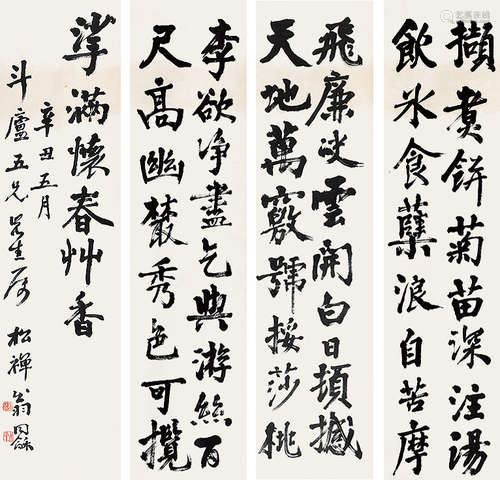 擷煮餅菊苗深注湯
飲冰食蘖浪自苦摩
飛廉吹雲開白日頓撼
天地萬竅號挼莎桃
李欲净盡乞與游絲百
尺高幽叢秀色可攬
挲滿懷春艸香
辛丑五月
斗廬五兄先生属
松禪翁同龢